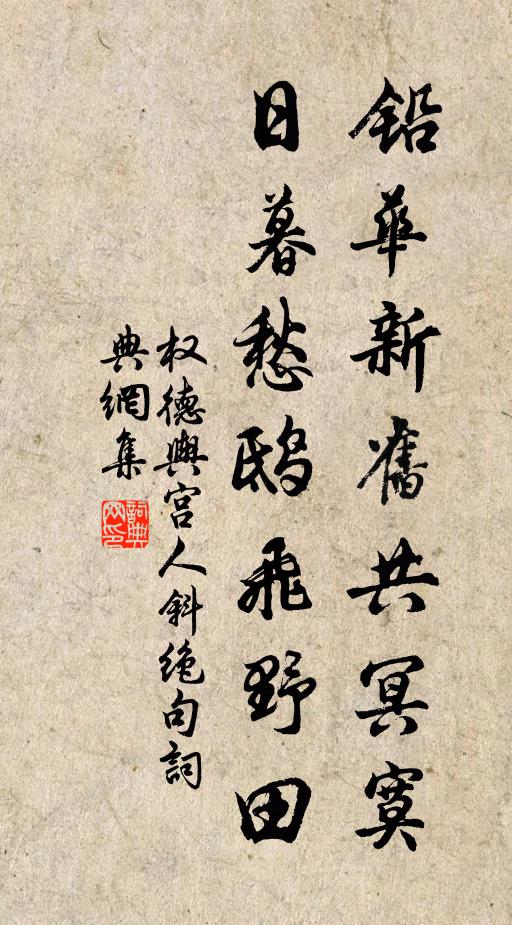 铅華新舊共冥寞
日暮愁鸱飛野田
权德輿宫人斜绝句詞
典網集
詞典网印